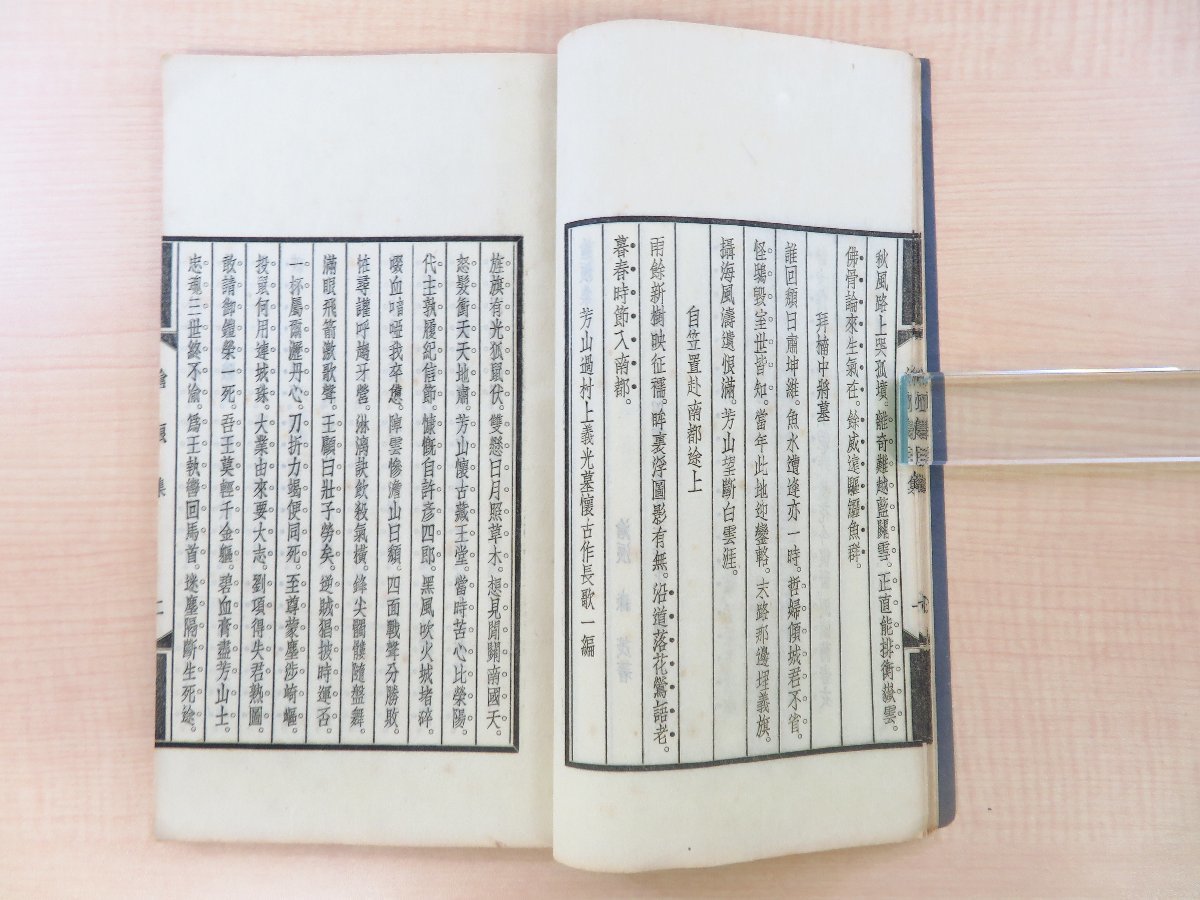 秋風路上哭孤墳。離奇難越藍關雲。正直能排衡嶽雲。
佛骨論來生氣在。餘威遠驅鱷魚群。
拜楠中將墓
誰回頽日肅坤維。魚水遭逢亦一時。哲婦傾城君不省。
怪鴟毀室世皆知。當年此地迎鑾輅。末路那邊埋義旗。
攝海風濤遺恨滿。芳山望斷白雲涯。
自笠置赴南都途上
雨餘新樹映征襦。眸裏浮圖影有無。沿道落花鶯語老。
暮春時節入南都。
芳山過村上義光墓懷古作長歌一編
旌旗有光狐鼠伏。雙懸日月照草木。想見開關南國天。
怒髮衝天天地肅。芳山懷古藏王堂。當時苦心比榮陽。
代主孰履紀信節。慷慨自許彥四郎。黑風吹火城堵碎。
啜血喑啞我卒憊。陣雲慘澹山日頽。四面戰聲分勝敗。
帷尋讙呼擁牙營。淋漓訣飲殺氣橫。鋒尖髑髏隨盤舞。
滿眼飛箭激歌聲。王顧曰壯子勞矣。逆賊猖披時運否。
一杯屬爾瀝丹心。刀折力竭便同死。至尊蒙塵涉崎嶇。
投鼠何用連城珠。大業由來要大志。劉項得失君熟圖。
敢請御鎧榮一死。吾王莫輕千金軀。碧血膏盡芳山土。
忠魂三世終不渝。爲王執轡回馬首。迷塵隔斷生死途。
滄浪集
二